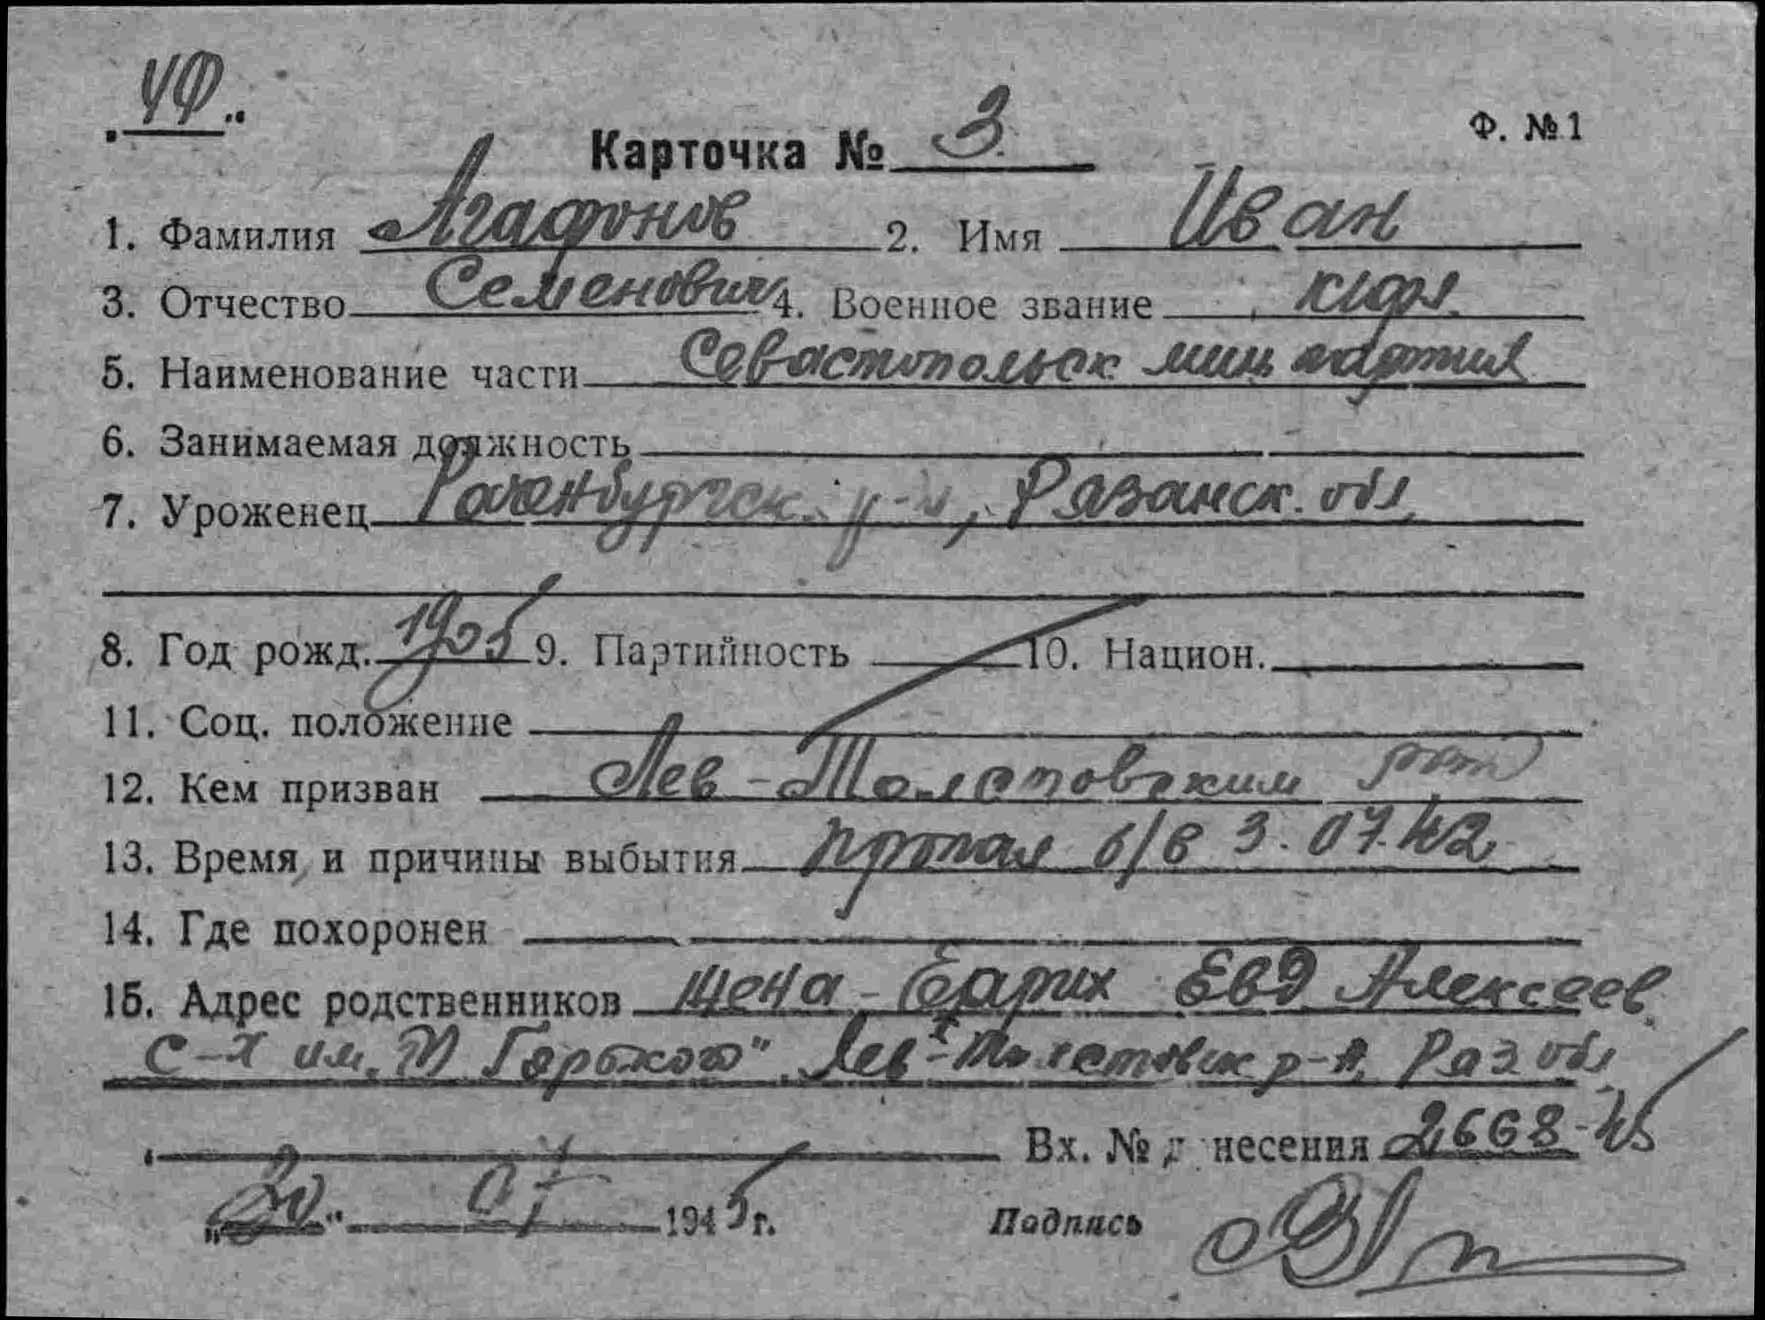 ЧФ.
Ф. №1
Карточка № 3
1. Фамилия Агафонов 2. Имя Иван
3. Отчество Семенович 4. Военное звание кфл.
5. Наименование части Севастопольск мин партия
6. Занимаемая должность
7. Уроженец Раненбургск. р-н, Рязанск. обл.
8. Год рожд. 1905 9. Партийность 10. Национ.
11. Соц. положение
12. Кем призван Лев-Толстовским
13. Время и причины выбытия пропал б/в 3.07.42
14. Где похоронен
15. Адрес родственников жена Евд Алексеев
с-х им. М Горького" Лев-Толстовск р-н, Ряз обл
Вх. № д несения 2668-45
„20" 07 1945 г. Подпись